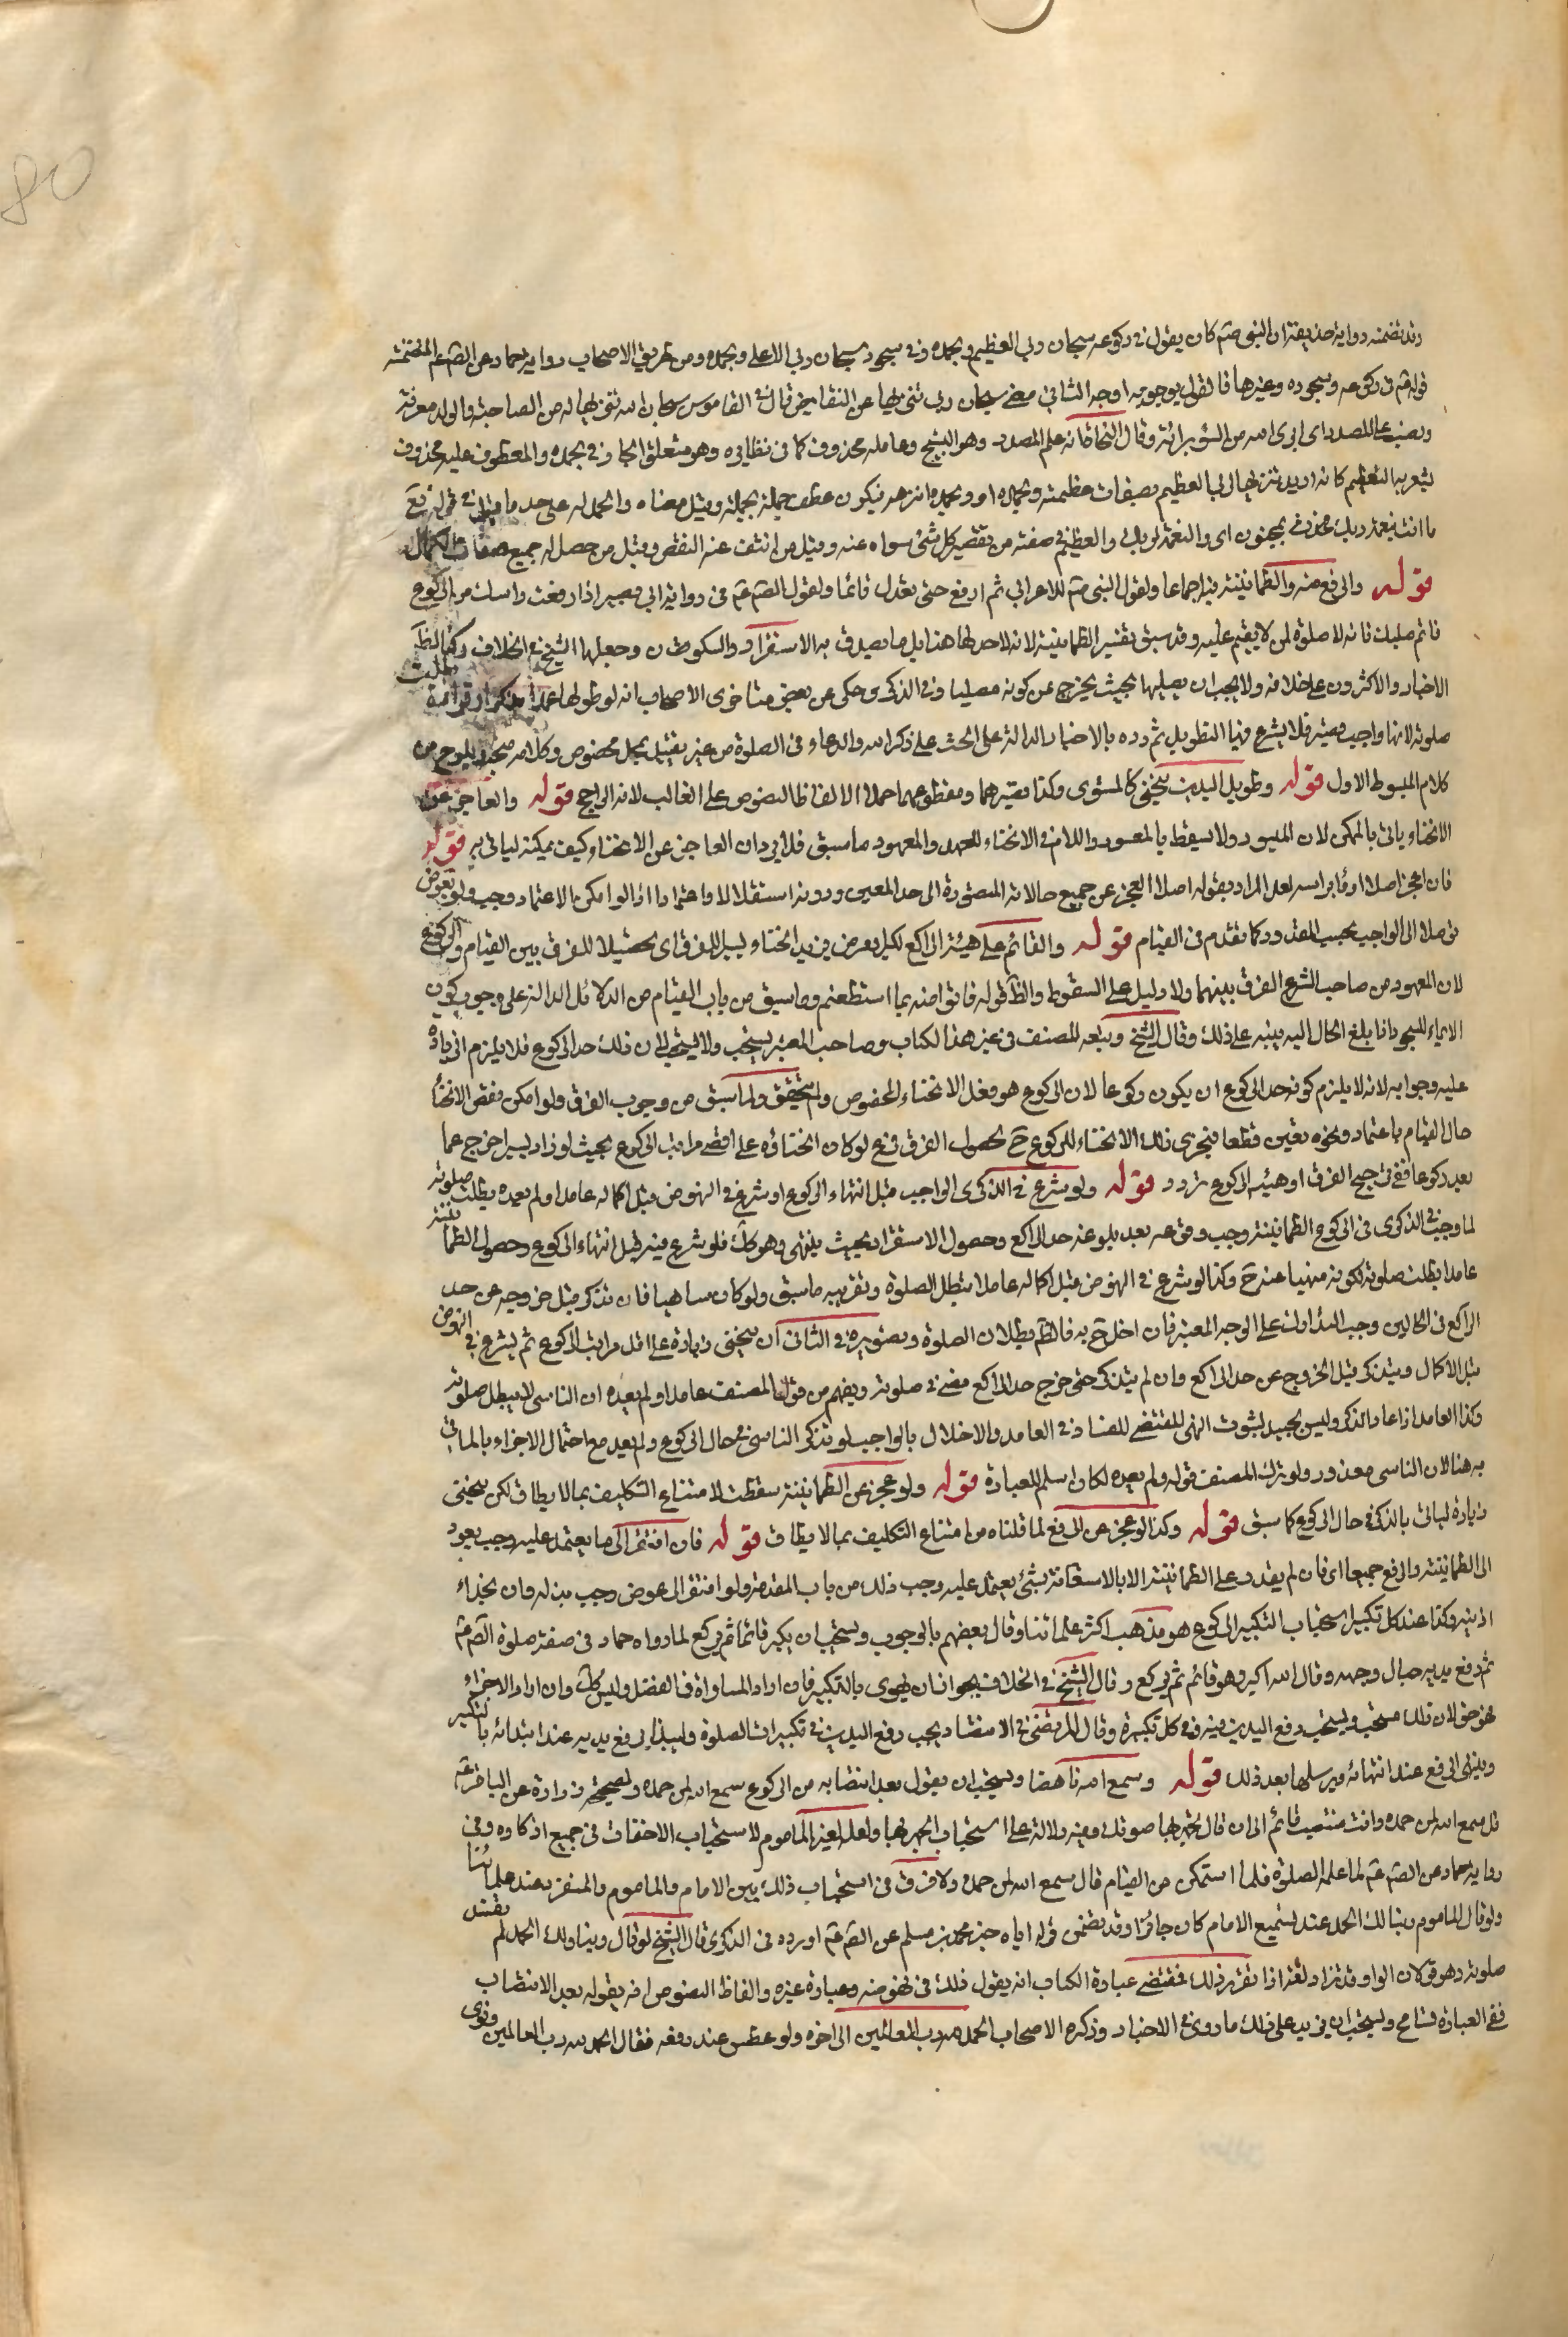 80
وقد تضمنه رواية حذيفة ان النبى صم كان يقول فى ركوعه سبحان ربى العظيم وبحمده وفى سجوده سبحان ربى الاعلى وبحمده ومن طريق الاصحاب رواية حماد عن الصم عم المتضمنة
قوله عم فى ركوعه وسجوده وغيرها فالقول بوجوبه اوجه الثانى معنى سبحان ربى تنزيها عن النقايص قال فى القاموس سبحان الله تنزيها له من الصاحبة والولد معرفة
ونصب على المصدر اى ابرئ الله من السوء براءة وقال النحاة انه علم المصدر وهو التسبيح وعامله محذوف كما فى نظايره وهو متعلق الجار فى وبحمده والمعطوف عليه محذوف
يشعر به التعظيم كانه اريد تنزيها لربى العظيم بصفات عظمته وبحمده او وبحمده انزهه فيكون عطف جملة بجملة وقيل معناه والحمد له على حد ما قيل فى قوله تع
ما انت بنعمة ربك بمجنون اى والنعمة لربك والعظيم فى صفته من يقصر كل شئ سواه عنه وقيل من انتفت عنه النقص وقيل من حصل له جميع صفات الكمال
قوله والرفع منه والطمانينة فيه اجماعا ولقول النبى صم للاعرابى ثم ارفع حتى تعتدل قائما ولقول الصم عم فى رواية ابى بصير اذا رفعت راسك من الركوع
فاقم صلبك فانه لا صلوة لمن لا يقيم صلبه وقد سبق تفسير الطمانينة لانه لا حد لها هذا بل ما يصدق به الاستقرار والسكون وجعلها الشيخ فى الخلاف ركنا لظ
الاخبار والاكثرون على خلافه ولا يجب ان يطيلها بحيث يخرج عن كونه مصليا وفى الذكرى وحكى عن بعض متاخرى الاصحاب انه لو طولها عمدا بذكر او قراءة بطلت
صلوته لانها واجب قصير فلا يشرع فيها التطويل ثم رده بالاخبار الدالة على الحث على ذكر الله والدعاء فى الصلوة من غير تقييد بمحل مخصوص وكلامه متجه ويلوح من
كلام المبسوط الاول قوله وطويل اليدين ينحنى كالمستوى وكذا قصيرهما ومقطوعهما حملا لالفاظ النصوص على الغالب لانه الراجح قوله والعاجز عن
الانحناء ياتى بالممكن لان الميسور لا يسقط بالمعسور واللام فى الانحناء للعهد والمعهود ما سبق فلا يرد ان العاجز عن الانحناء كيف يمكنه لياتى به قوله
فان عجز اصلا اومأ براسه لعل المراد بقوله اصلا العجز عن جميع حالاته المتصورة الى حد المعين ودونه استقلالا واعتمادا اذ لو امكن الاعتماد وجب ولو بعوض
توصلا الى الواجب بحسب المقدور كما تقدم فى القيام قوله والقائم على هيئة الراكع لكبر او مرض يزيد انحناء يسيرا للفرق اى تحصيلا للفرق بين القيام والركوع
لان المعهود من صاحب الشرع الفرق بينهما ولا دليل على السقوط والظ قوله فاتوا منه بما استطعتم وما سبق من باب القيام من الدلائل الدالة على وجوب كون
الايماء للسجود اذا بلغ الحال اليه ينبه على ذلك وقال الشيخ وتبعه المصنف فى غير هذا الكتاب وصاحب المعتبر يستحب ولا يجب لان ذلك حد الركوع فلا يلزم الزيادة
عليه وجوابه لانه لا يلزم كونه حد الركوع ان يكون ركوعا لان الركوع هو فعل الانحناء المخصوص ولم يتحقق ولما سبق من وجوب الفرق ولو امكن نقص الانحناء
حال القيام باعتماد ونحوه تعين قطعا فيجزى ذلك الانحناء للركوع ح لحصول الفرق فرع لو كان انحناؤه على اقصى مراتب الركوع بحيث لو زاد يسيرا خرج عما
يعد ركوعا ففى ترجيح الفرق او هيئة الركوع تردد قوله ولو شرع فى الذكرى الواجب قبل انتهاء الركوع او شرع فى النهوض قبل اكماله عامدا ولم يعده بطلت صلوته
لما وجب فى الذكرى فى الركوع الطمانينة وجب وقوعه بعد بلوغه حد الراكع وحصول الاستقرار بحيث ينتهى وهو كك فلو شرع فيه قبل انتهاء الركوع وحصول الطمانينة
عامدا بطلت صلوته لكونه منهيا عنه ح وكذا لو شرع فى النهوض قبل اكماله عامدا تبطل الصلوة وتقريبه ما سبق ولو كان ساهيا فان تذكر قبل خروجه عن حد
الراكع فى الحالين وجب التدارك على الوجه المعتبر فان اخل ح به فالظم بطلان الصلوة وتصويره فى الثانى ان ينحنى زيادة على اقل مراتب الركوع ثم يشرع فى النهوض
قبل الاكمال ويتذكر قبل الخروج عن حد الراكع وان لم يتذكر حتى خرج حد الراكع مضى فى صلوته ويفهم من قول المصنف عامدا ولم يعده ان الناسى لا يبطل صلوته
وكذا العامد اذا عاد الذكر وليس بجيد لثبوت النهى المقتضى للفساد فى العامد والاخلال بالواجب لو تذكر الناسى فى حال الركوع ولم يعد مع احتمال الاجزاء بالماتى
به هنا لان الناسى معذور ولو ترك المصنف قوله ولم يعده لكان اسلم للعبارة قوله ولو عجز عن الطمانينة سقطت لامتناع التكليف بما لا يطاق لكن ينحنى
زيادة لياتى بالذكر فى حال الركوع كما سبق قوله وكذا لو عجز عن الرفع لما قلناه من امتناع التكليف بما لا يطاق قوله فان افتقر الى ما يعتمد عليه وجب يعود
الى الطمانينة والرفع جميعا اى فان لم يقدر على الطمانينة الا بالاستعانة بشئ يعتمد عليه وجب ذلك من باب المقدمة ولو افتقر الى عوض وجب بذله وان بحذاء
اذنيه وكذا عند كل تكبير استحباب التكبير للركوع هو مذهب اكثر علمائنا وقال بعضهم بالوجوب ويستحب ان يكبر قائما ثم يركع لما رواه حماد فى صفة صلوة الصم عم
ثم رفع يديه حيال وجهه وقال الله اكبر وهو قائم ثم يركع وقال الشيخ فى الخلاف بجواز ان يهوى بالتكبير فان اراد المساواة فى الفضل وليس كك وان اراد الاجزاء
فهو حق لان ذلك مستحب ويستحب رفع اليدين فيه وفى كل تكبيرة وقال المرتضى فى الانتصار يجب رفع اليدين فى تكبيرات الصلوة وليبتدئ برفع يديه عند ابتدائه بالتكبير
وينتهى الرفع عند انتهائه ويرسلها بعد ذلك قوله وسمع الله ناهضا ويستحب ان يقول بعد انتصابه من الركوع سمع الله لمن حمده ولصحيحة زرارة عن الباقر عم
قل سمع الله لمن حمده وانت منتصب قائم الى ان قال تجهر بها صوتك وفيه دلالة على استحباب الجهر بها ولعله لغير الماموم لاستحباب الاخفات فى جميع اذكاره وفى
رواية حماد عن الصم عم لما علمه الصلوة فلما استمكن من القيام قال سمع الله لمن حمده ولا فرق فى استحباب ذلك بين الامام والماموم والمنفرد عند علمائنا
ولو قال الماموم ربنا لك الحمد عند تسميع الامام كان جائزا وقد تضمن قوله اياه خبر محمد بن مسلم عن الصم عم اورده فى الذكرى قال الشيخ لو قال ربنا ولك الحمد لم تفسد
صلوته وهو قوى لان الواو قد تزاد لغة اذا تقرر ذلك فمقتضى عبارة الكتاب انه يقول ذلك فى نهوضه وعبارة غيره والفاظ النصوص انه يقوله بعد الانتصاب
ففى العبارة تسامح ويستحب ان يزيد على ذلك ما روى فى الاخبار وذكره الاصحاب الحمد لله رب العالمين الى اخره ولو عطس عند رفعه فقال الحمد لله رب العالمين ونوى